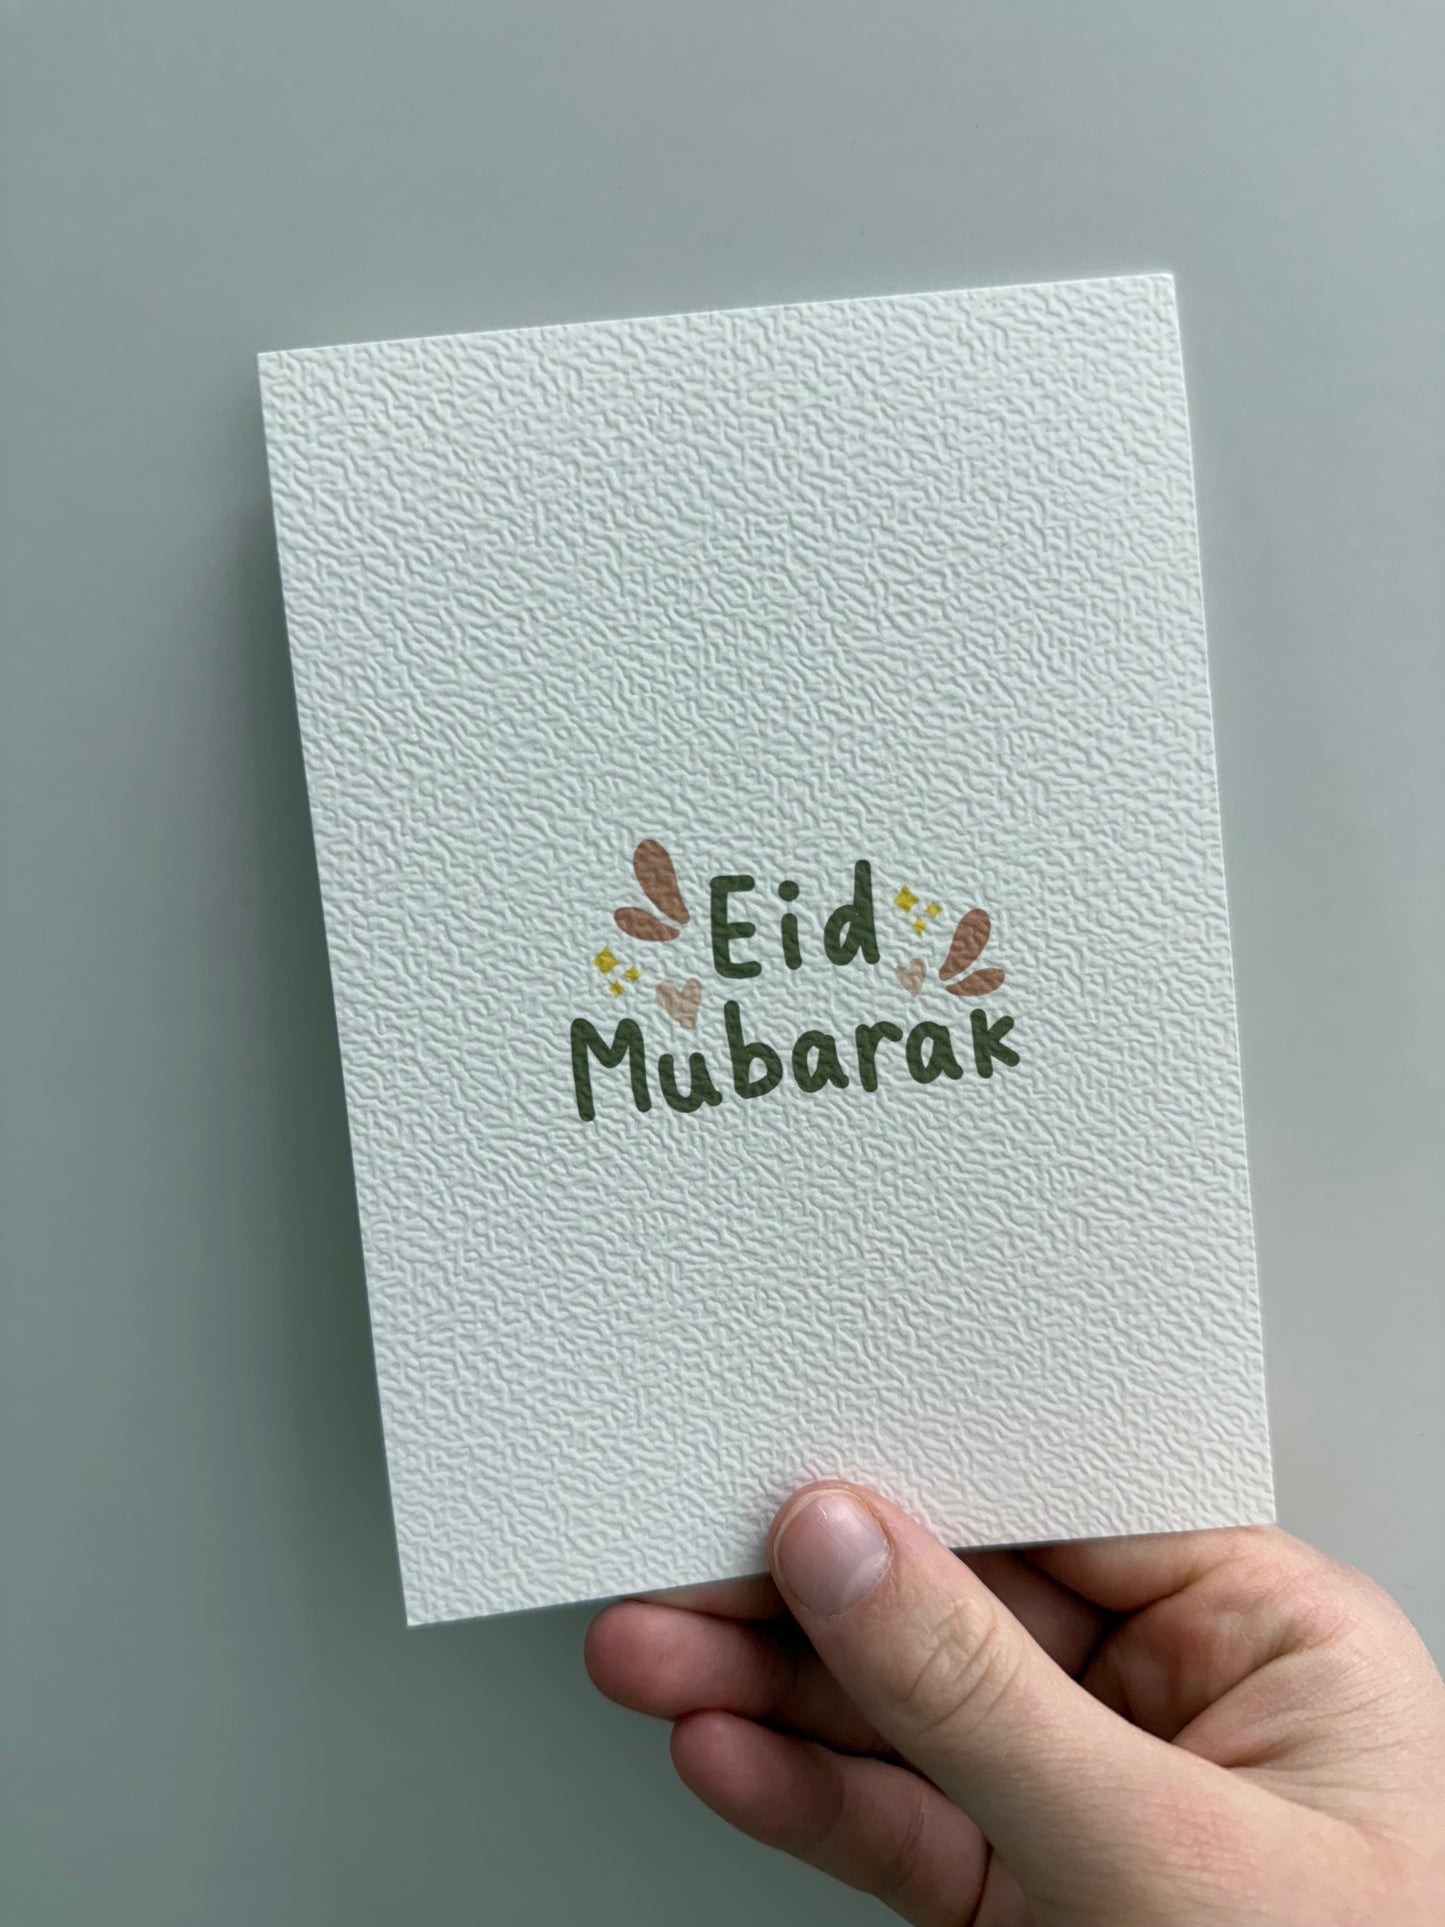 Eid
Mubarak